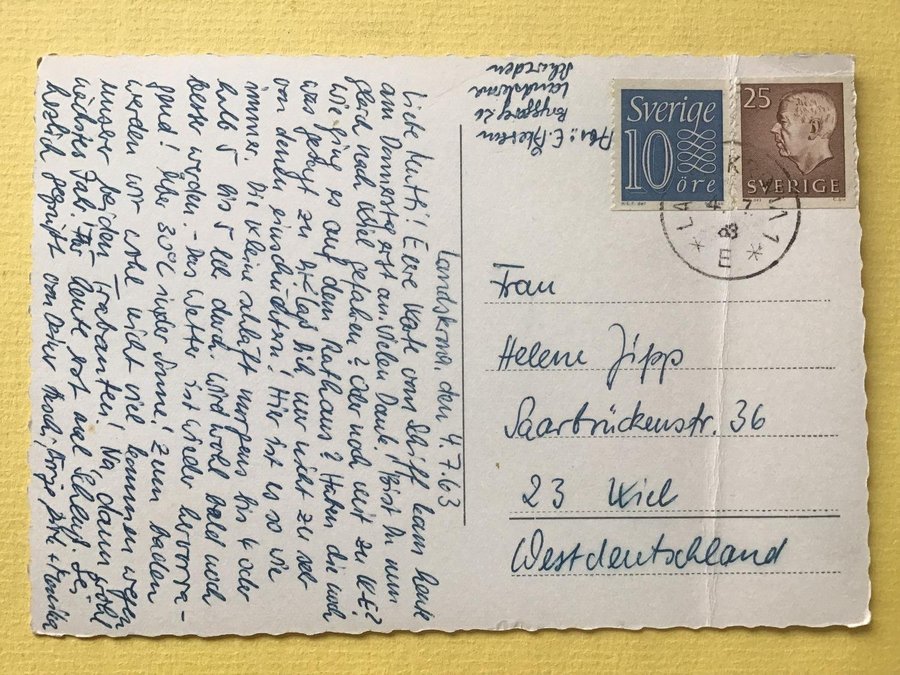 Landskrona, den 4.7.63
Liebe Mutti! Eure Karte vom Schiff kam heute
am Donnerstag erst an. Vielen Dank! Bist Du nun
gleich nach Kiel gefahren? Oder noch mit zu
Wie ging es auf dem Rathaus? Haben die noch
was gesagt zu Dir? Laß Dich nur nicht zu sehr
von denen einschüchtern! Hier ist es so wie
immer. Die Kleine schläft morgens bis 4 oder
halb 5 bis 5 Uhr durch. Wird wohl bald noch
besser werden. - Das Wetter ist wieder hervorra-
gend! 30°C Sonne! Zum Baden
werden wir wohl nicht viel kommen wegen
unserer beiden Trabanten! Na dann wohl
nächstes Jahr! Für heute erst mal Schluß. Sei
herzlich gegrüßt von Deiner + Annika
Abs.: E.
Landskrona
Schweden
Sverige
10
öre
25
SVERIGE
LANDSKRONA 1
4 7
63
E
Frau
Helene Jipp
Saarbrückenstr. 36
23 Kiel
Westdeutschland